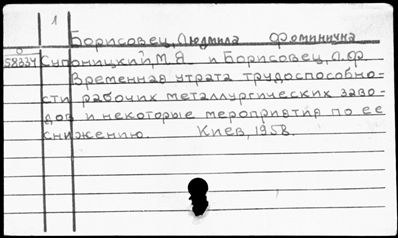 1
Борисовец, Людмила Фоминична
0
58334 Супоницкий, М.Я. и Борисовец, Л.Ф.
Временная утрата трудоспособно-
сти рабочих металлургических заво-
дов и некоторые мероприятия по ее
снижению. Киев, 1958.